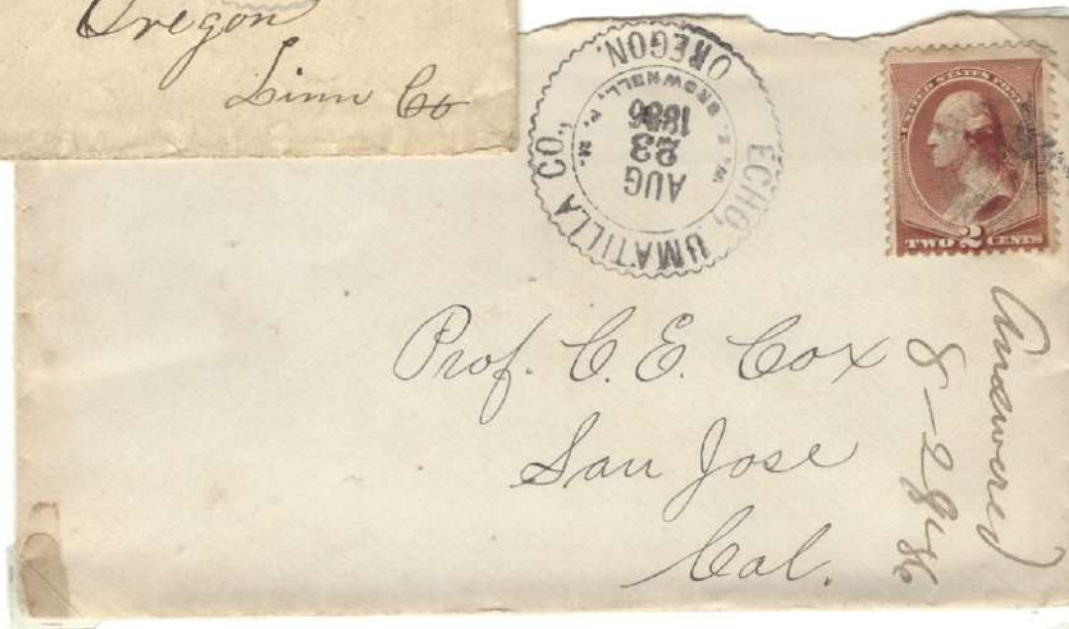 Oregon
Linn Co
ECHO, UMATILLA CO. OREGON.
BROWNELL, P. M.
AUG
23
1886
UNITED STATES POST
TWO 2 CENTS
Prof. C. E. Cox
San Jose
Cal.
Answered
8-28-86